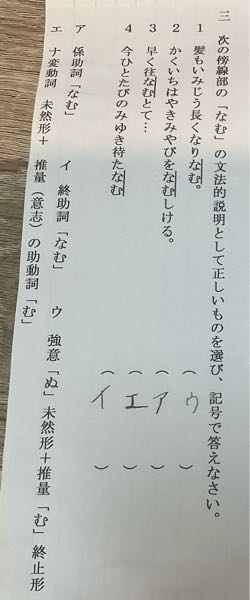 三　次の傍線部の「なむ」の文法的説明として正しいものを選び、記号で答えなさい。
1　髪もいみじう長くなりなむ。（ウ）
2　かくいちはやきみやびをなむしける。（ア）
3　早く往なむとて…（エ）
4　今ひとたびのみゆき待たなむ（イ）
ア　係助詞「なむ」　イ　終助詞「なむ」　ウ　強意「ぬ」未然形＋推量「む」終止形
エ　ナ変動詞　未然形＋　推量（意志）の助動詞「む」